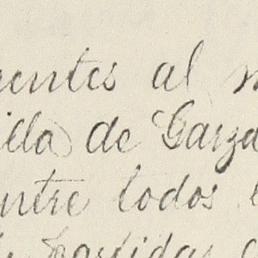 rentes al
illa de Garza
ntre todos